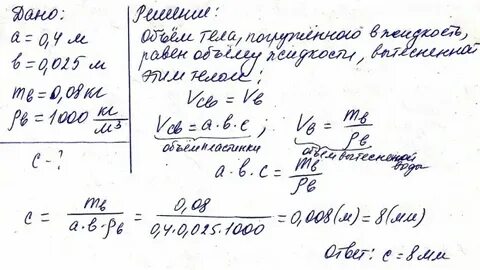 Дано:
a = 0,4 м
в = 0,025 м
mв = 0,08 кг
ρв = 1000 кг/м³
c - ?
Решение:
Объём тела, погружённого в жидкость,
равен объёму жидкости, вытесненной
этим телом:
Vсв = Vв
Vсв = a·в·c ; Vв = mв/ρв
объём пластинки объём вытесненной воды
a·в·c = mв/ρв
c = mв/(a·в·ρв) = 0,08/(0,4·0,025·1000) = 0,008(м) = 8(мм)
Ответ: c = 8 мм